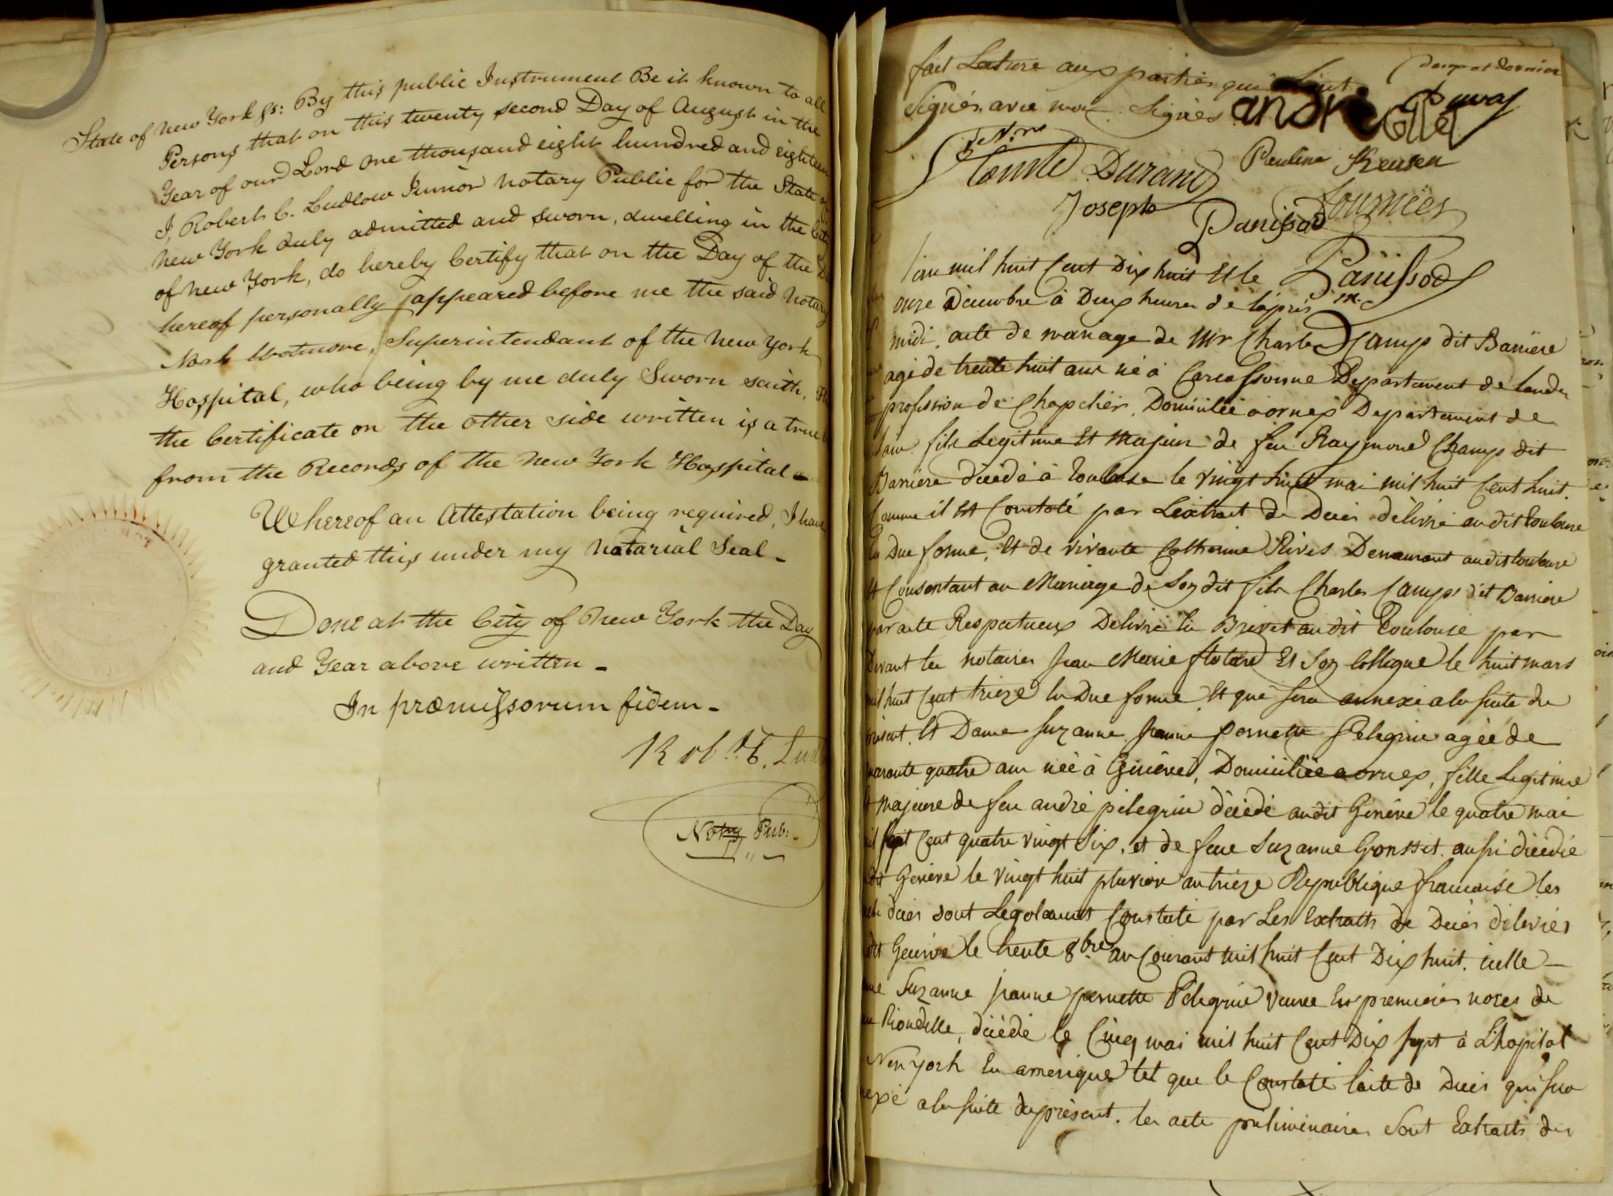 State of New York ss: By this public Instrument Be it known to all
Persons that on this twenty second Day of August in the
Year of our Lord One thousand eight hundred and eighteen
I, Robert C. Ludlow Junior Notary Public for the State
New York duly admitted and sworn, dwelling in the City
of New York, do hereby Certify that on the Day of the
hereof personally appeared before me the said Notary
Superintendant of the New York
Hospital, who being by me duly Sworn saith,
the Certificate on the other side written is a true
from the Records of the New York Hospital
Whereof an Attestation being required, I have
granted this under my Notarial Seal
Done at the City of New York the Day
and Year above written
In præmissorum fidem
Robt. C. Lud
Notry Pub:
fait Lecture aux parties qui
signés avec nous. Signés andré
Durand Pauline
Joseph Panissod Tournier
Panissod
L'an mil huit Cent Dix huit Et le
onze Décembre à Deux heures de l'après
midi, acte de mariage de Mr Charle Camps dit Barriere
agé de trente huit ans né à Carcassonne Département de Laude
profession de Chapelier, Domicilié à ornex Département de
fils Legitime Et Majeur de feu Raymond Champs dit
Barriere décédé à Toulouse le vingt huit mai mil huit Cent huit
Comme il Est Constaté par L'extrait de Décès délivré au dit Toulouse
En Due forme, Et de vivante Catherine Rives Demeurant au dit Toulouse
Et Consentant au Mariage de Son dit fils Charles Camps dit Barriere
par acte Respectueux Delivré En Brevet au dit Toulouse par
devant les notaires Jean Marie flotard Et Son Collegue le huit mars
mil huit Cent treize En Due forme Et que sera annexé à la suite du
présent. Et Dame Suzanne Jeanne Pernette Pelegrin agée de
quarante quatre ans née à Genève, Domiciliée a ornex, fille Legitime
Et majeure de feu andré pelegrin décédé au dit Genève le quatre mai
mil sept Cent quatre vingt Six, et de feue Suzanne Gousset aussi décédée
au dit Genève le vingt huit pluviose an treize République francaise les
décès sont Legalement Constaté par Les Extraits de Décès délivrés
au dit Genève le trente 8bre an Courant mil huit Cent Dix huit. icelle
Suzanne Jeanne pernette Pelegrin veuve En premieres noces de
décédé le Cinq mai mil huit Cent Dix sept à L'hopital
New york En amerique tel que le Constate l'acte de Décès qui sera
annexé a la suite du présent. les acte préliminaires Sont Extraits des